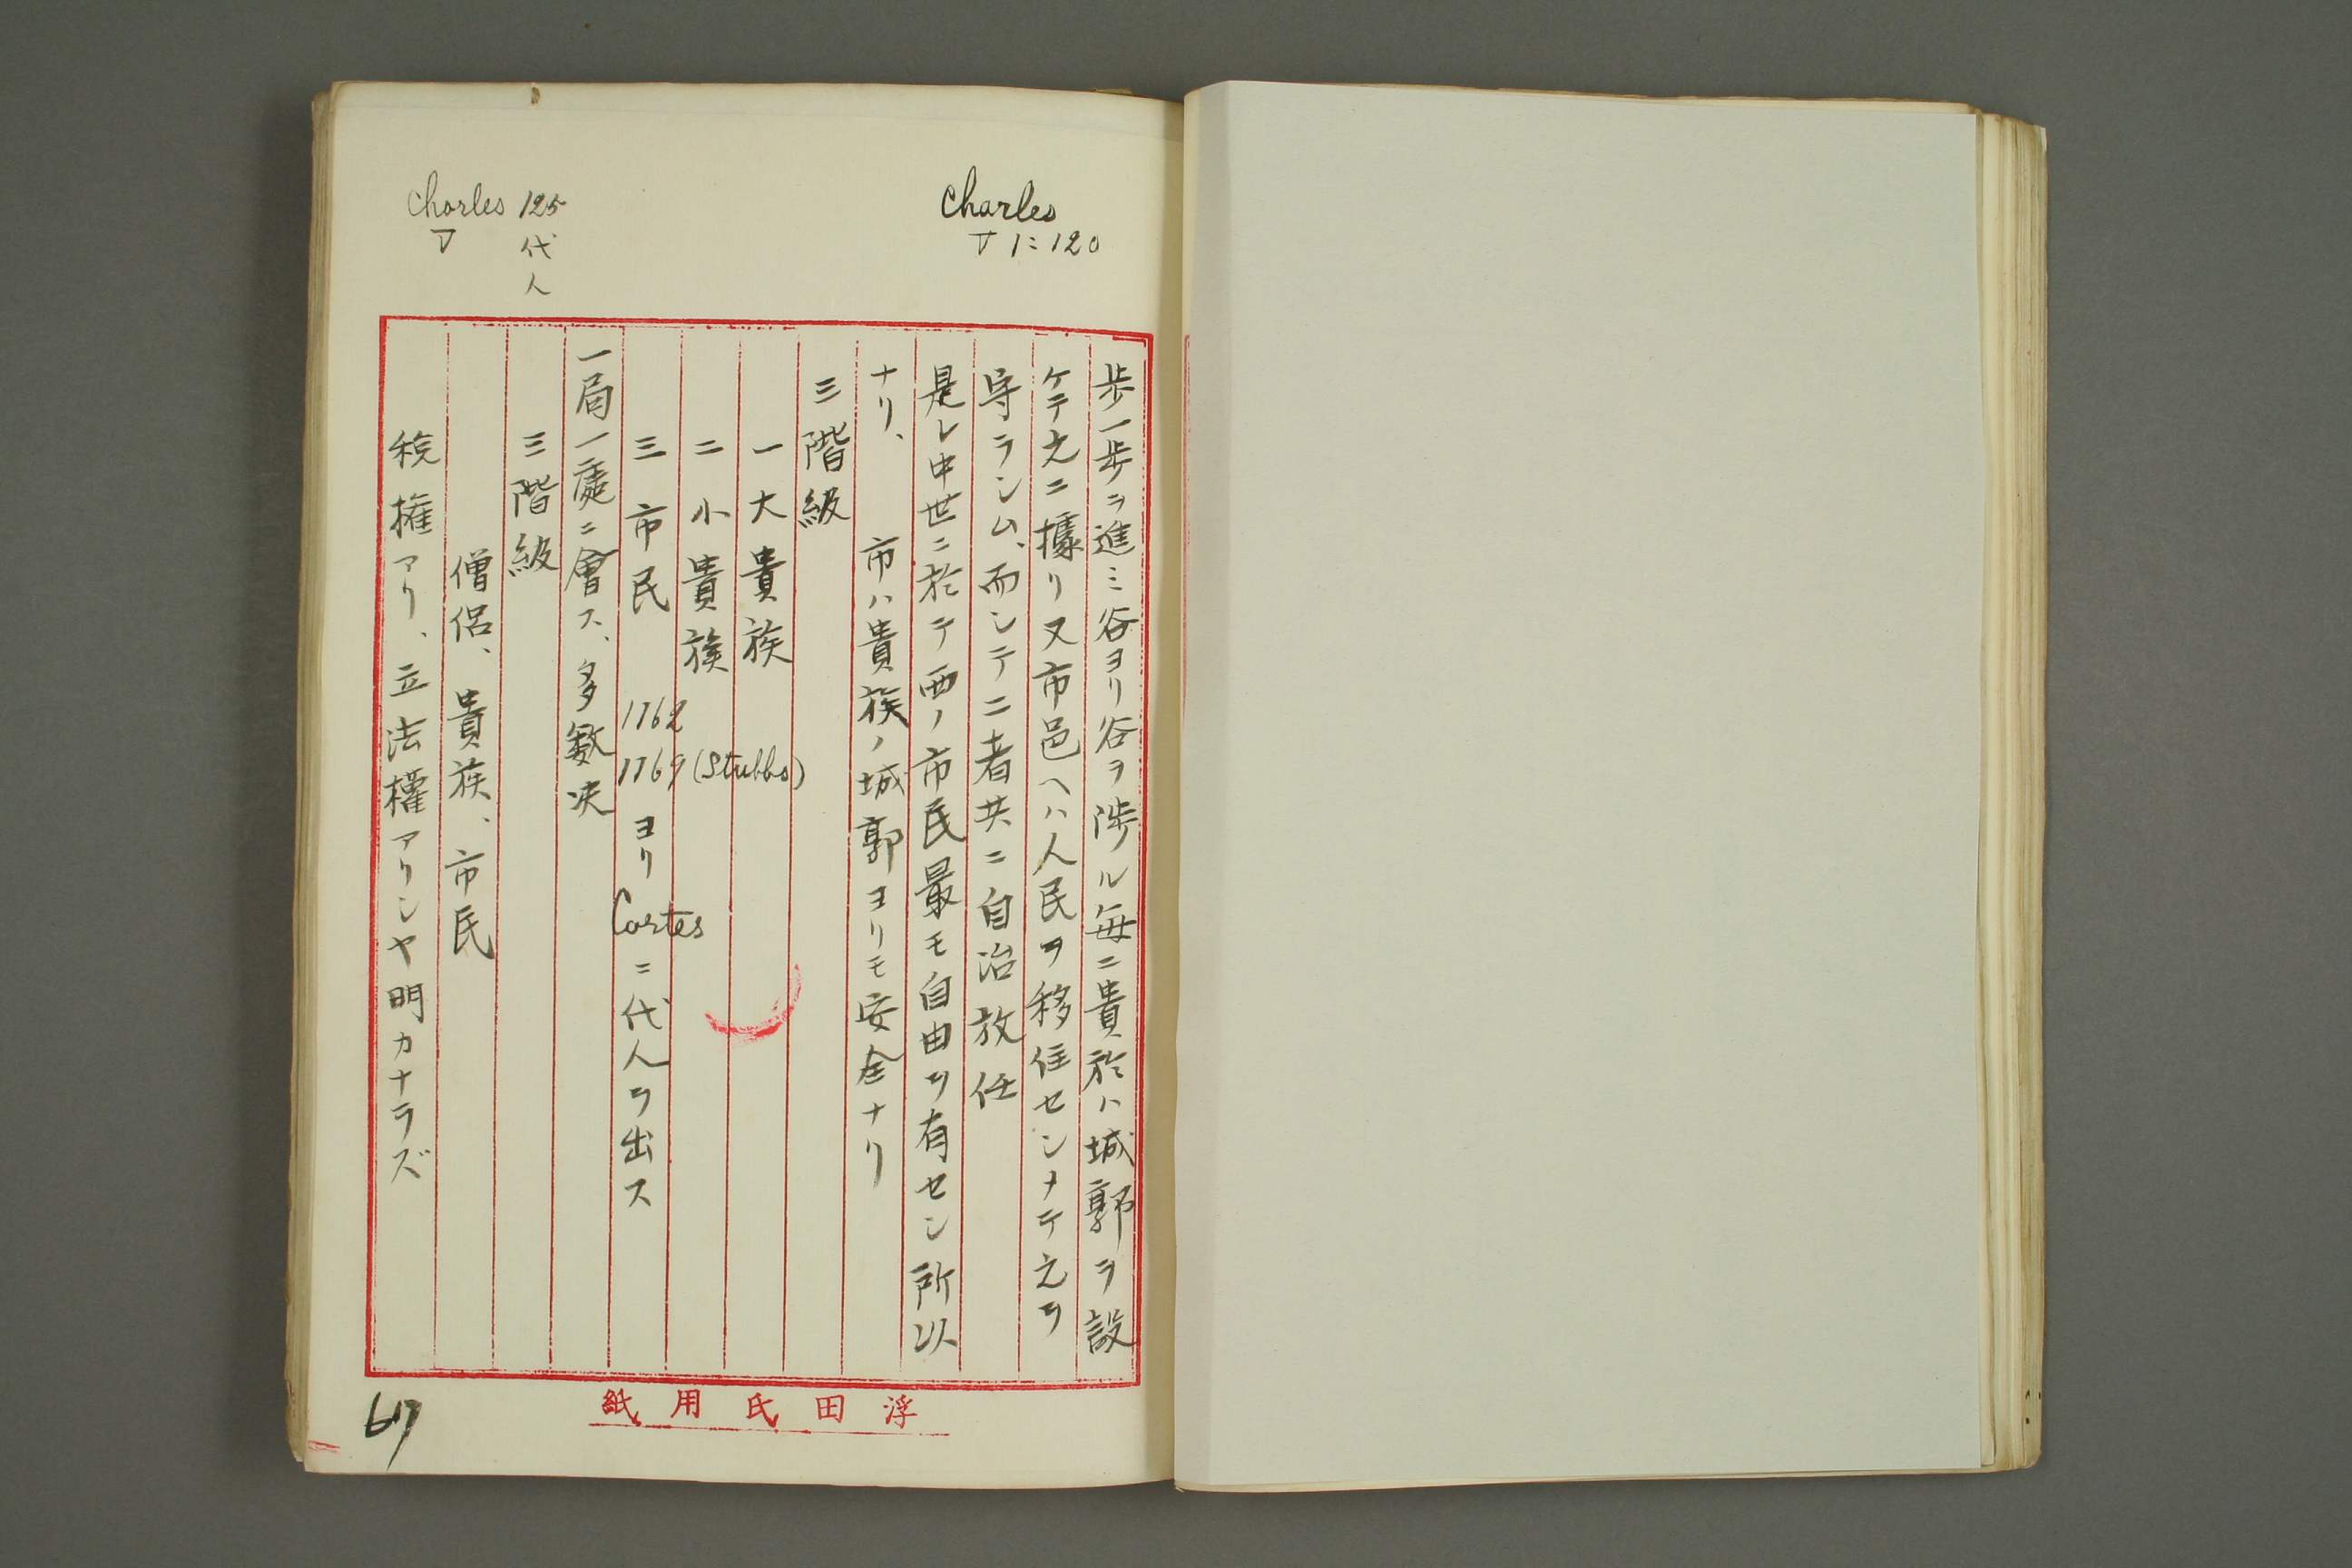 Charles
V 1:120
歩一歩ヲ進ミ谷ヨリ谷ヲ渉ル毎ニ貴族ハ城郭ヲ設
ケテ之ニ據リ又市邑ヘハ人民ヲ移住センメテ之ヲ
守ランム、而シテ二者共ニ自治放任
是レ中世ニ於テ西ノ市民最モ自由ヲ有セシ所以
ナリ、 市ハ貴族ノ城郭ヨリモ安全ナリ
三階級
一大貴族
二小貴族
三市民 1162
1169 (Stubbs) ヨリ Cortes ニ代人ヲ出ス
一局一處ニ會ス、多數决
Charles 125
V 代人
三階級
僧侶、貴族、市民
税権アリ、立法權アリシヤ明カナラズ
浮田氏用紙
67